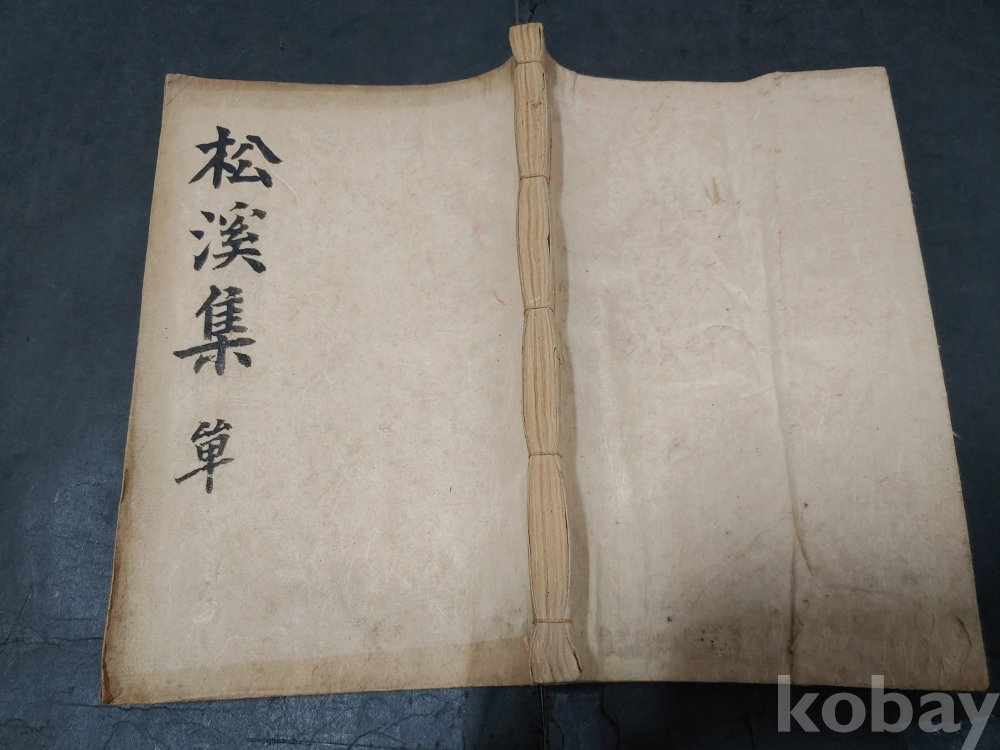 松溪集
單
kobay